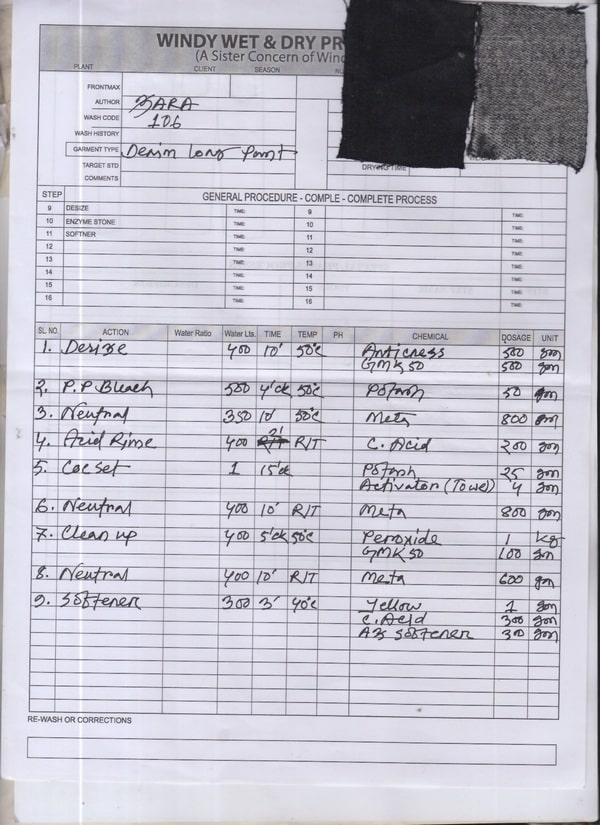 WINDY WET & DRY PR
(A Sister Concern of Wind
PLANT CLIENT SEASON
FRONTMAX
AUTHOR ZARA
WASH CODE 106
WASH HISTORY
GARMENT TYPE Denim Long Pant
TARGET STD DRYING TIME
COMMENTS
STEP GENERAL PROCEDURE - COMPLE - COMPLETE PROCESS
9 DESIZE TIME: 9 TIME:
10 ENZYME STONE TIME: 10 TIME:
11 SOFTNER TIME: 11 TIME:
12 TIME: 12 TIME:
13 TIME: 13 TIME:
14 TIME: 14 TIME:
15 TIME: 15 TIME:
16 TIME: 16 TIME:
SL. NO. ACTION Water Ratio Water Lts. TIME TEMP PH CHEMICAL DOSAGE UNIT
1. Desize 400 10' 50°c Anticreass 500 gm
GMK 50 500 gm
2. P.P Bleach 500 4'ck 50°c Potash 50 gm
3. Neutral 350 10' 50°c Meta 800 gm
4. Acid Rinse 400 2' R/T C. Acid 200 gm
5. Coc Set 1 15'ck Potash 25 gm
Activator (Towel) 4 gm
6. Neutral 400 10' R/T Meta 800 gm
7. Clean up 400 5'ck 50°c Peroxide 1 kg
GMK 50 100 gm
8. Neutral 400 10' R/T Meta 600 gm
9. Softener 300 3' 40°c Yellow 1 gm
C. Acid 300 gm
Softener 300 gm
RE-WASH OR CORRECTIONS